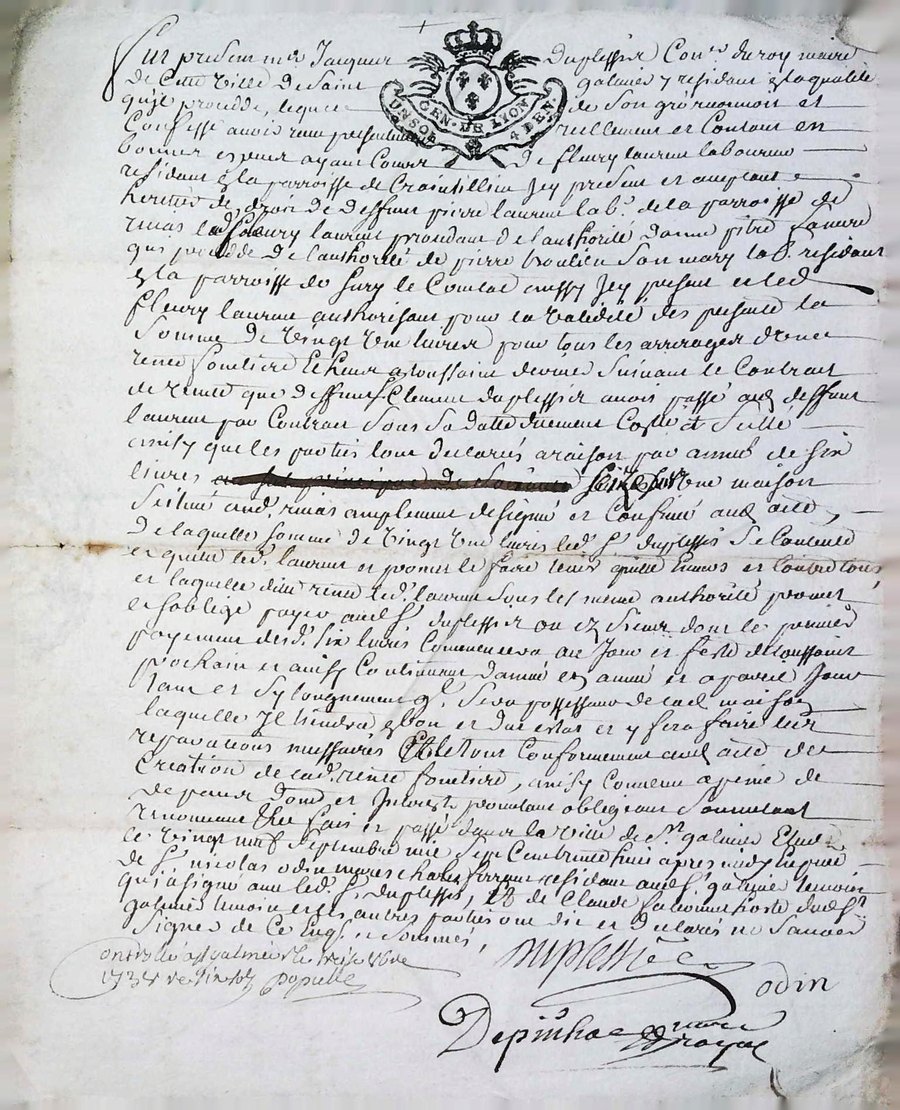 UN SOL GEN. DE LYON 4 DEN
Fut present mre Jacques Duplessis Conr du roy maire
de Cette ville de Saint galmier y residant
qui procedde, lequel de son gré
Confesse avoir reçu presentement reellement et Contant en
bonnes especes ayant Cours de fleury laurent laboureur
residant a la parroisse de Craintillieu Icy present et aceptant
heritier de droit de deffunt pierre laurent labr. de la parroisse de
rivas fleury laurent procedant de l'authorité
qui procedde de l'authorité de pierre son mary lab. residant
a la parroisse de Sury le Comtal aussy Icy present et led
fleury laurent authorisant pour la validité des presente la
Somme de vingt une livres pour tous les arrerages d'une
rente fonciere Echeue a toussaint derniere suivant le Contrat
de vente que deffunt Clement duplessis avoit passé aud deffunt
laurent par Contrat Sous Sa datte
ainsy que les parties l'ont declarés a raison par année de six
livres une maison
Scittué aud. rivas amplement designé et Confiné aud acte,
de laquelle somme de vingt une livres led. Sr duplessis Se Contente
et quitte led. laurent et promet le faire tenir quitte envers et Contre tous
et laquelle ditte rente led. laurent Sous les meme authorité promet
et s'oblige payer aud Sr duplessis ou es Siens dont le premier
payement desd. six livres Commencera au Jour et feste de toussaint
prochain et ainsy Continuant d'année en année et a pareil Jour
tant et Sy longuement ql. Sera possesseur de lad maison
laquelle Il tiendra en bon et due estat et y fera faire les
reparations necessaires Et le tout Conformement aud acte de
Creation de lad. rente fonciere, ainsy Convenu a peine de
de tous depens dom et Interets promettant obligeant Soumettant
renonceant &c fait et passé dans la ville de St galmier Etude
le vingt neuf septembre mil Sept Cent trente huit après midy
de Sr nicolas odin marechal residant aud St galmier temoin
qui a signé avec led. Sr duplessis, et de Claude hoste dud St
galmier temoin et les autres parties ont dit et declarés ne Scavoir
Signer de Ce Enq. et Sommés,
Controllé a St galmier le
1738
duplessis
odin
Depinhac nore
royal